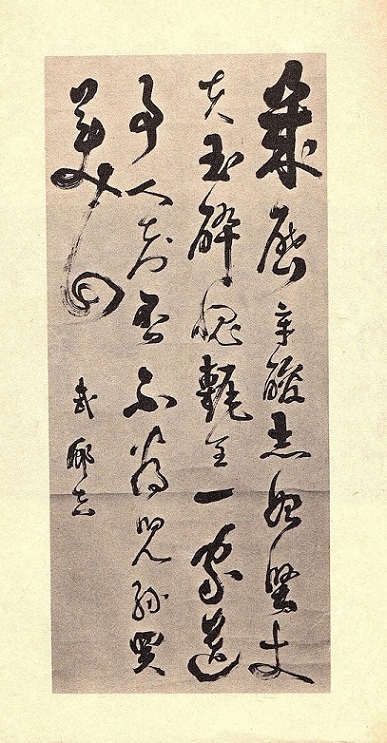 幾歷辛酸志始堅丈
夫玉碎愧甎全一家遺
事人知否不為兒孫買
美田
武邨吉